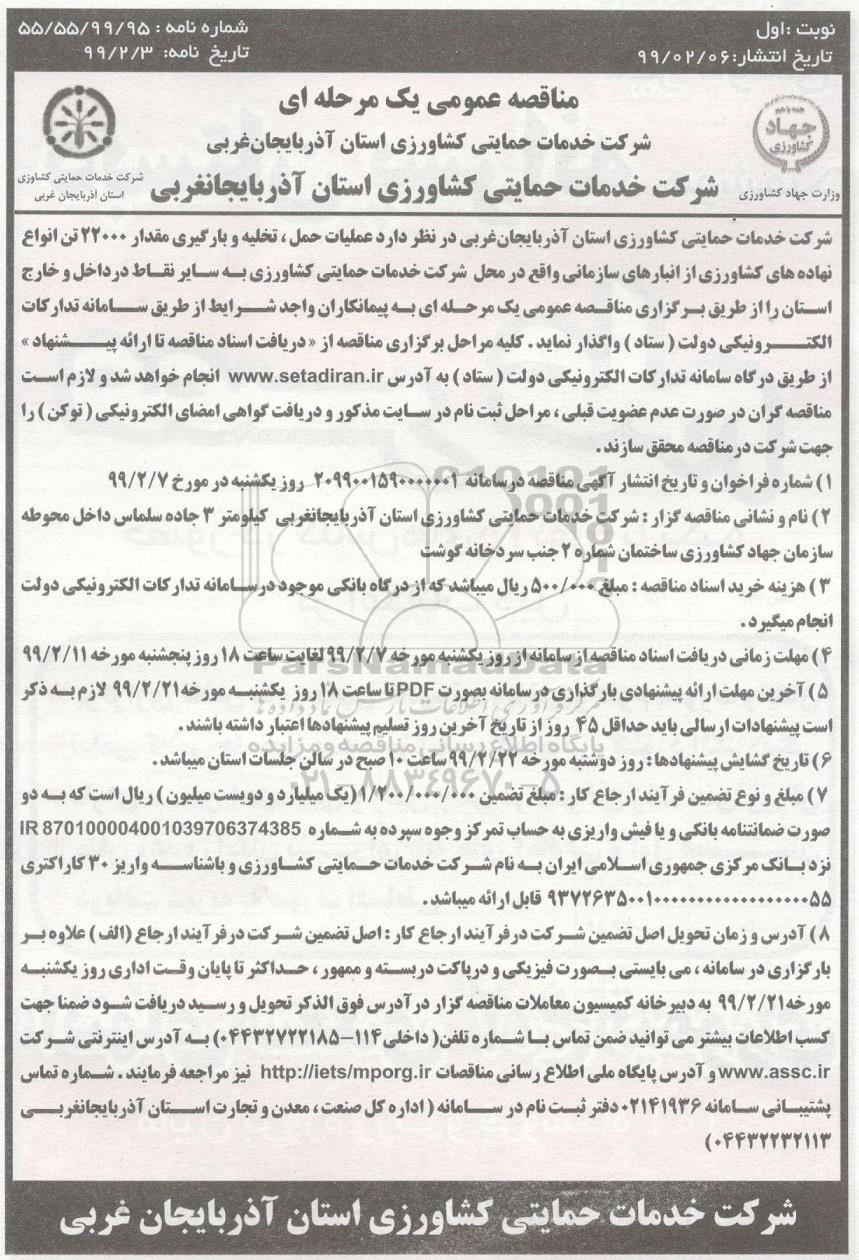 نوبت : اول
تاریخ انتشار: ۹۹/۰۲/۰۶
شماره نامه : ۵۵/۵۵/۹۹/۹۵
تاریخ نامه: ۹۹/۲/۳
مناقصه عمومی یک مرحله ای
شرکت خدمات حمایتی کشاورزی استان آذربایجان‌غربی
شرکت خدمات حمایتی کشاورزی استان آذربایجانغربی
همه با هم
جهاد
کشاورزی
وزارت جهاد کشاورزی
شرکت خدمات حمایتی کشاوزی
استان آذربایجان غربی
شرکت خدمات حمایتی کشاورزی استان آذربایجان‌غربی در نظر دارد عملیات حمل ، تخلیه و بارگیری مقدار ۲۲۰۰۰ تن انواع
نهاده های کشاورزی از انبارهای سازمانی واقع در محل شرکت خدمات حمایتی کشاورزی به سایر نقاط درداخل و خارج
استان را از طریق برگزاری مناقصه عمومی یک مرحله ای به پیمانکاران واجد شرایط از طریق سامانه تدارکات
الکترونیکی دولت ( ستاد ) واگذار نماید . کلیه مراحل برگزاری مناقصه از « دریافت اسناد مناقصه تا ارائه پیشنهاد »
از طریق درگاه سامانه تدارکات الکترونیکی دولت ( ستاد ) به آدرس www.setadiran.ir انجام خواهد شد و لازم است
مناقصه گران در صورت عدم عضویت قبلی ، مراحل ثبت نام در سایت مذکور و دریافت گواهی امضای الکترونیکی ( توکن ) را
جهت شرکت درمناقصه محقق سازند .
۱) شماره فراخوان و تاریخ انتشار آگهی مناقصه درسامانه ۲۰۹۹۰۰۱۵۹۰۰۰۰۰۰۱ روز یکشنبه در مورخ ۹۹/۲/۷
۲) نام و نشانی مناقصه گزار : شرکت خدمات حمایتی کشاورزی استان آذربایجانغربی کیلومتر ۳ جاده سلماس داخل محوطه
سازمان جهاد کشاورزی ساختمان شماره ۲ جنب سردخانه گوشت
۳) هزینه خرید اسناد مناقصه : مبلغ ۵۰۰/۰۰۰ ریال میباشد که از درگاه بانکی موجود درسامانه تدارکات الکترونیکی دولت
انجام میگیرد .
۴) مهلت زمانی دریافت اسناد مناقصه از سامانه از روز یکشنبه مورخه ۹۹/۲/۷ لغایت ساعت ۱۸ روز پنجشنبه مورخه ۹۹/۲/۱۱
۵) آخرین مهلت ارائه پیشنهادی بارگذاری درسامانه بصورت PDF تا ساعت ۱۸ روز یکشنبه مورخه ۹۹/۲/۲۱ لازم به ذکر
است پیشنهادات ارسالی باید حداقل ۴۵ روز از تاریخ آخرین روز تسلیم پیشنهادها اعتبار داشته باشند .
۶) تاریخ گشایش پیشنهادها : روز دوشنبه مورخه ۹۹/۲/۲۲ ساعت ۱۰ صبح در سالن جلسات استان میباشد .
۷) مبلغ و نوع تضمین فرآیند ارجاع کار : مبلغ تضمین ۱/۲۰۰/۰۰۰/۰۰۰ (یک میلیارد و دویست میلیون ) ریال است که به دو
صورت ضمانتنامه بانکی و یا فیش واریزی به حساب تمرکز وجوه سپرده به شماره IR 870100004001039706374385
نزد بانک مرکزی جمهوری اسلامی ایران به نام شرکت خدمات حمایتی کشاورزی و باشناسه واریز ۳۰ کاراکتری
قابل ارائه میباشد .
۸) آدرس و زمان تحویل اصل تضمین شرکت درفرآیند ارجاع کار : اصل تضمین شرکت درفرآیند ارجاع (الف) علاوه بر
بارگزاری در سامانه ، می بایستی بصورت فیزیکی و درپاکت دربسته و ممهور ، حداکثر تا پایان وقت اداری روز یکشنبه
مورخه ۹۹/۲/۲۱ به دبیرخانه کمیسیون معاملات مناقصه گزار در آدرس فوق الذکر تحویل و رسید دریافت شود ضمنا جهت
کسب اطلاعات بیشتر می توانید ضمن تماس با شماره تلفن( داخلی ۱۱۴-۰۴۴۳۲۷۲۲۱۸۵) به آدرس اینترنتی شرکت
www.assc.ir و آدرس پایگاه ملی اطلاع رسانی مناقصات http://iets/mporg.ir نیز مراجعه فرمایند . شماره تماس
پشتیبانی سامانه ۰۲۱۴۱۹۳۶ دفتر ثبت نام در سامانه ( اداره کل صنعت ، معدن و تجارت استان آذربایجانغربی
۰۴۴۳۲۲۳۲۱۱۳)
شرکت خدمات حمایتی کشاورزی استان آذربایجان غربی
ParsNamadData
پایگاه اطلاع رسانی مناقصه و مزایده
۰۲۱-۸۸۳۴۹۶۷۰-۵